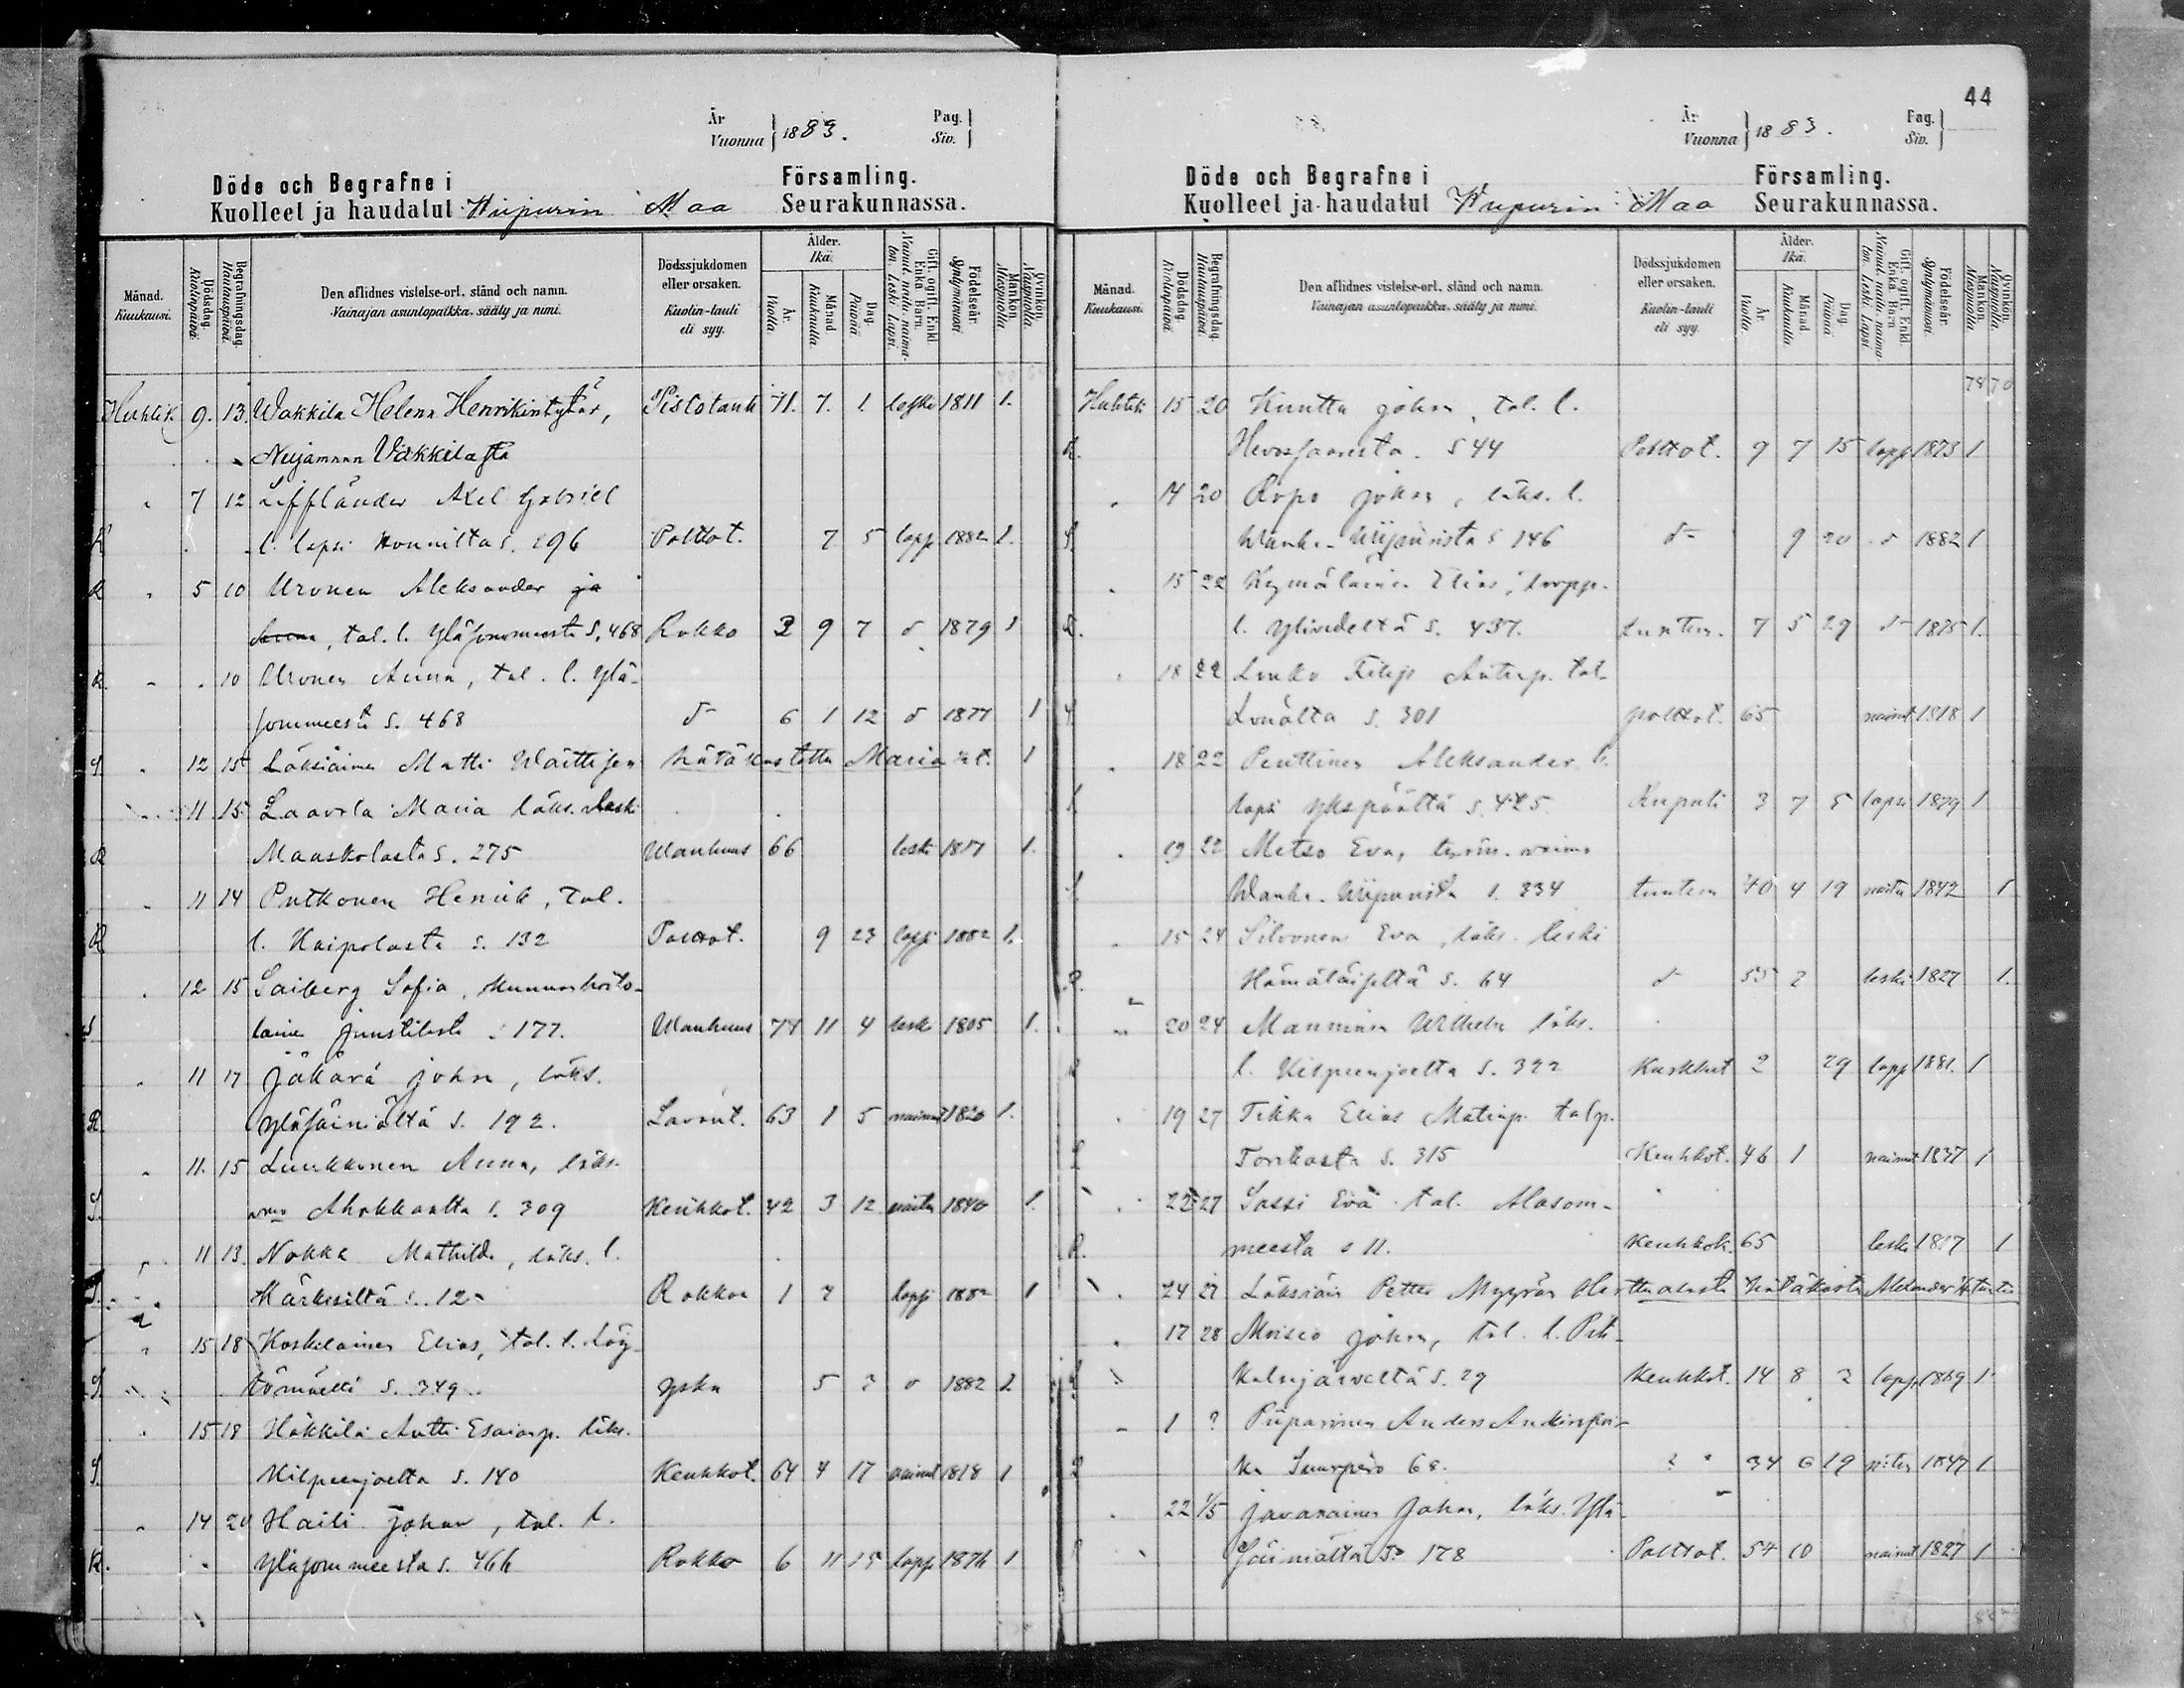 År
Vuonna } 1883. Pag. Siv. }
Döde och Begrafne i Församling.
Kuolleet ja haudatut Wiipurin Maa Seurakunnassa.
Månad. Kuukausi. Dödsdag. Kuolinpäivä. Begrafningsdag. Hautauspäivä. Den aflidnes vistelse-ort, stånd och namn. Vainajan asuntopaikka, sääty ja nimi. Dödssjukdomen eller orsaken. Kuolin-tauti eli syy. Ålder. Ikä. År. Vuotta. Månad. Kuukautta. Dag. Päivää. Gift, ogift, Enkl. Enka Barn. Nainut, naima-ton. Leski. Lapsi. Födelseår. Syntymävuosi. Mankön. Miespuolia. Qvinkön. Naispuolia.
Huhtik. 9. 13. Wakkila Helena Henrikintytär, Pistotaut 71. 7. 1. leski 1811 1.
Nuijamaan Vakkilasta
7 12 Liffländer Axel Gabriel
l. lapsi Kounilta s. 296 Polttot. 7 5 laps 1882 1.
R 5 10 Uronen Aleksander ja
Anna, tal. l. Yläsommeesta s. 468 Rokko 3 9 7 d 1879 1
R. 10 Uronen Anna, tal. l. Ylä-
sommeesta s. 468 d- 6 1 12 d 1877 1
S. 12 15 Läksiäinen Matti Waittisen hätäkastettu Maria 1
11 15 Laavola Maria läks. leski
R Maaskolasta s. 275 Wanhuus 66 leski 1817 1.
11 14 Putkonen Henrik, tal.
R l. Kaipolasta s. 132 Polttot. 9 23 lapsi 1882 1.
12 15 Saiberg Sofia, kunnanhoito-
S laine Juustilasta s. 177. Wanhuus 77 11 4 leski 1805 1.
11 17 Jäkärä Johan, läks.
R. Yläsäiniältä s. 192. Lavant. 63 1 5 nainut 1820 1.
11. 15 Luukkonen Anna, läks.
S. Ahokkaalta s. 309 Keuhkot. 42 3 12 naitu 1840 1.
11 13. Nokka Mathilda, läks. l.
S. Kärkisiltä s. 12 Rokkoa 1 7 lapsi 1882 1
15 18 Koskelainen Elias, tal. l. Löy-
S. tömäelti s. 349. Yskä 5 7 d 1882 1
15 18 Häkkilä Antti Esaianp. läks.
S. Kilpeenjoelta s. 140 Keuhkot. 64 4 17 nainut 1818 1
14 20 Haili Johan, tal. l.
R. Yläsommeesta s. 466 Rokko 6 11 15 laps 1876 1
44
År
Vuonna } 1883. Pag. Siv. }
Döde och Begrafne i Församling.
Kuolleet ja haudatut Wiipurin Maa Seurakunnassa.
Månad. Kuukausi. Dödsdag. Kuolinpäivä. Begrafningsdag. Hautauspäivä. Den aflidnes vistelse-ort, stånd och namn. Vainajan asuntopaikka, sääty ja nimi. Dödssjukdomen eller orsaken. Kuolin-tauti eli syy. Ålder. Ikä. År. Vuotta. Månad. Kuukautta. Dag. Päivää. Gift, ogift, Enkl. Enka Barn. Nainut, naima-ton. Leski. Lapsi. Födelseår. Syntymävuosi. Mankön. Miespuolia. Qvinkön. Naispuolia.
78 70
Huhtik 15 20 Kuutta Johan, tal. l.
R. Hevossaaresta. s 44 Polttot. 9 7 15 laps 1873 1
14 20 Ropo Johan, läks. l.
S. Wanha-Wiipurista s 146 d- 9 20 d 1882 1
15 22 Kymäläinen Elias, torpp.
R. l. Ylivedeltä s. 437. tuntem. 7 5 29 d- 1875 1.
18 22 Linko Filip Antinp. tal.
Lonälta s. 301 Polttot. 65 nainut 1818 1
18 22 Penttinen Aleksander l.
lapsi Ykspäältä s. 425 Kuputi 3 7 5 lapsi 1879 1
19 22 Metso Eva, työm. waimo
Wanha-Wiipurista s. 334 tuntem 40 4 19 naitu 1842 1
15 24 Silvonen Eva, läks. leski
R. Hämäläiseltä s. 64 d 55 2 leski 1827 1.
20 24 Manninen Wilhelm läks.
l. Kilpeenjoelta s. 322 Kurkkut 2 29 laps 1881. 1
19 27 Tikka Elias Matinp. talp.
S Torikasta s. 315 Keuhkot. 46 1 nainut 1837 1
22 27 Sassi Eva tal. Alasom-
R. meesta s 11. Keuhkok. 65 leski 1817 1
24 27 Läksiäin Petter Myyrän Herttualasta hätäkaste Alexander
17 28 Moisio Johan, tal. l. Pet-
kälnjärveltä s. 29 Keuhkot. 14 8 2 laps 1869 1.
1 ? Piiparinen Anders Anderspoi-
ka Suurpero 68. ? 34 6 19 1847 1
22 1/5 Javanainen Johan, läks. Ylä-
Säiniältä s. 178 Polttot. 54 10 nainut 1827 1